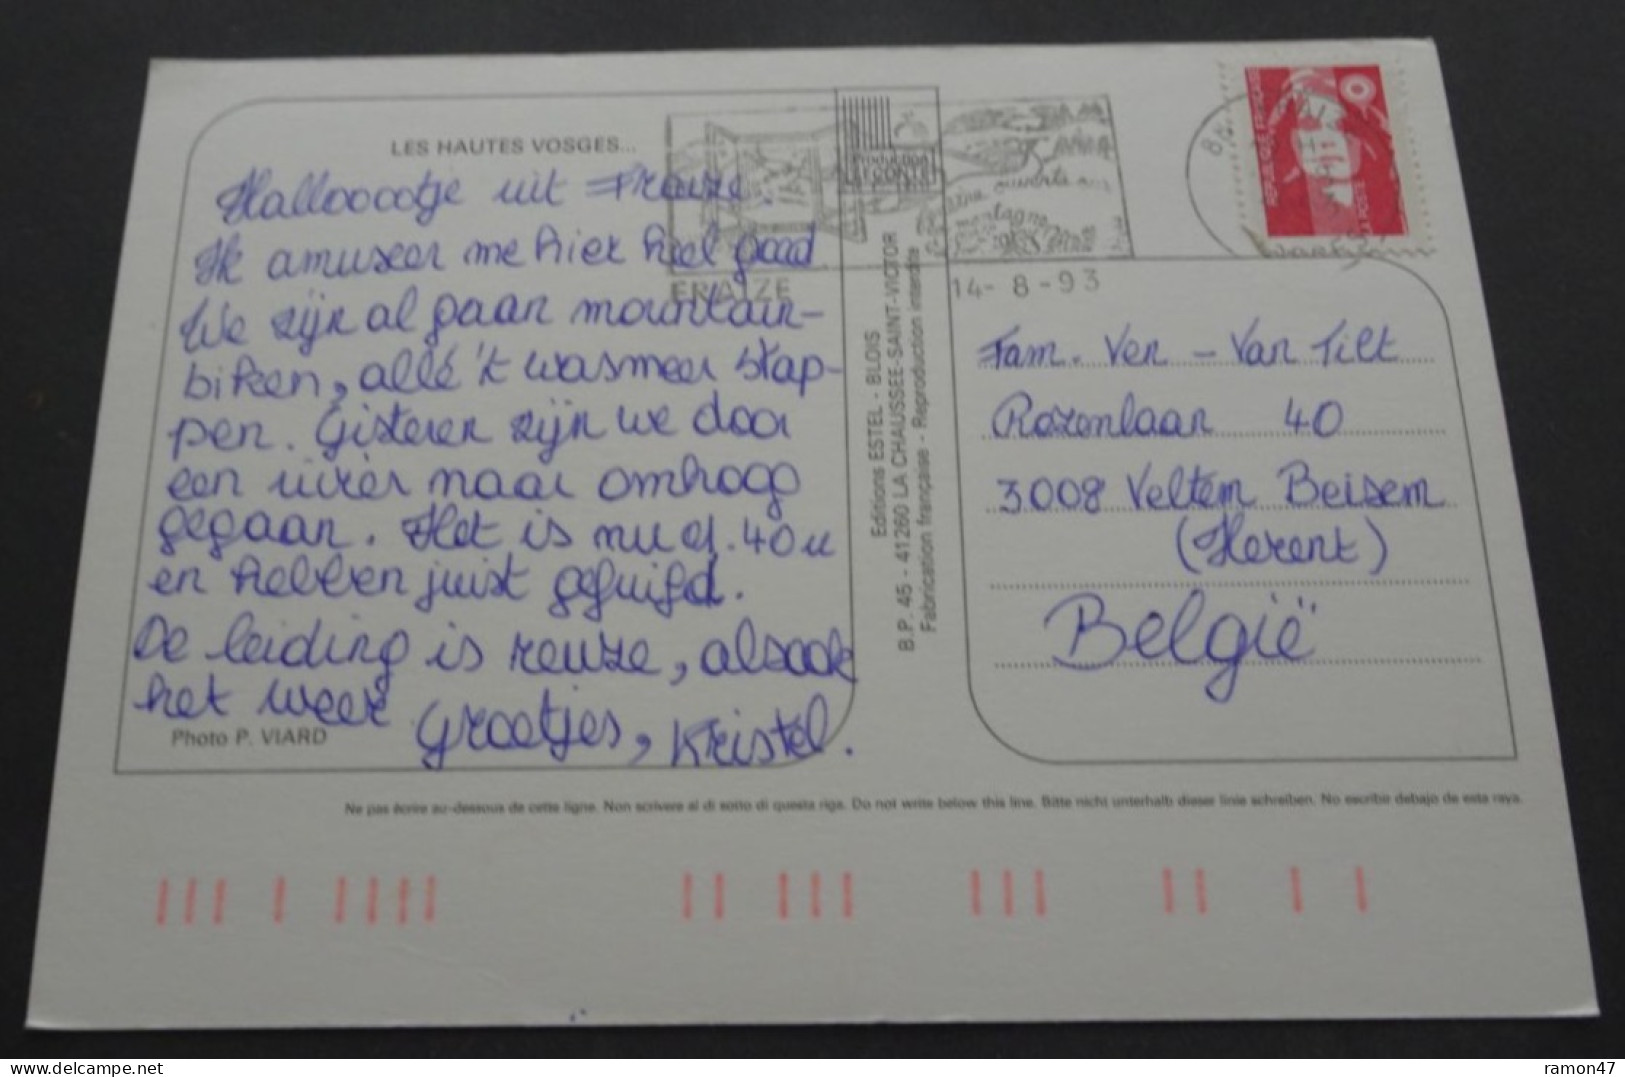 LES HAUTES VOSGES...
Hallooootje uit Fraize.
Ik amuseer me hier heel goed
We zijn al gaan mountain-
biken, allé 't was meer stap-
pen. Gisteren zijn we door
een rivier naar omhoog
gegaan. Het is nu 21.40u
en hebben juist gefuifd.
De leiding is reuze, alsook
het weer. Groetjes, Kristel.
Photo P. VIARD
FRAIZE
14-8-93
Production
LECONTE
Editions ESTEL - BLOIS
B.P. 45 - 41260 LA CHAUSSEE-SAINT-VICTOR
Fabrication française - Reproduction interdite
REPUBLIQUE FRANÇAISE
LA POSTE
Fam. Ven - Van Tilt
Rozenlaan 40
3008 Veltem Beisem
(Herent)
België
Ne pas écrire au-dessous de cette ligne. Non scrivere al di sotto di questa riga. Do not write below this line. Bitte nicht unterhalb dieser linie schreiben. No escribir debajo de esta raya.
ramon47